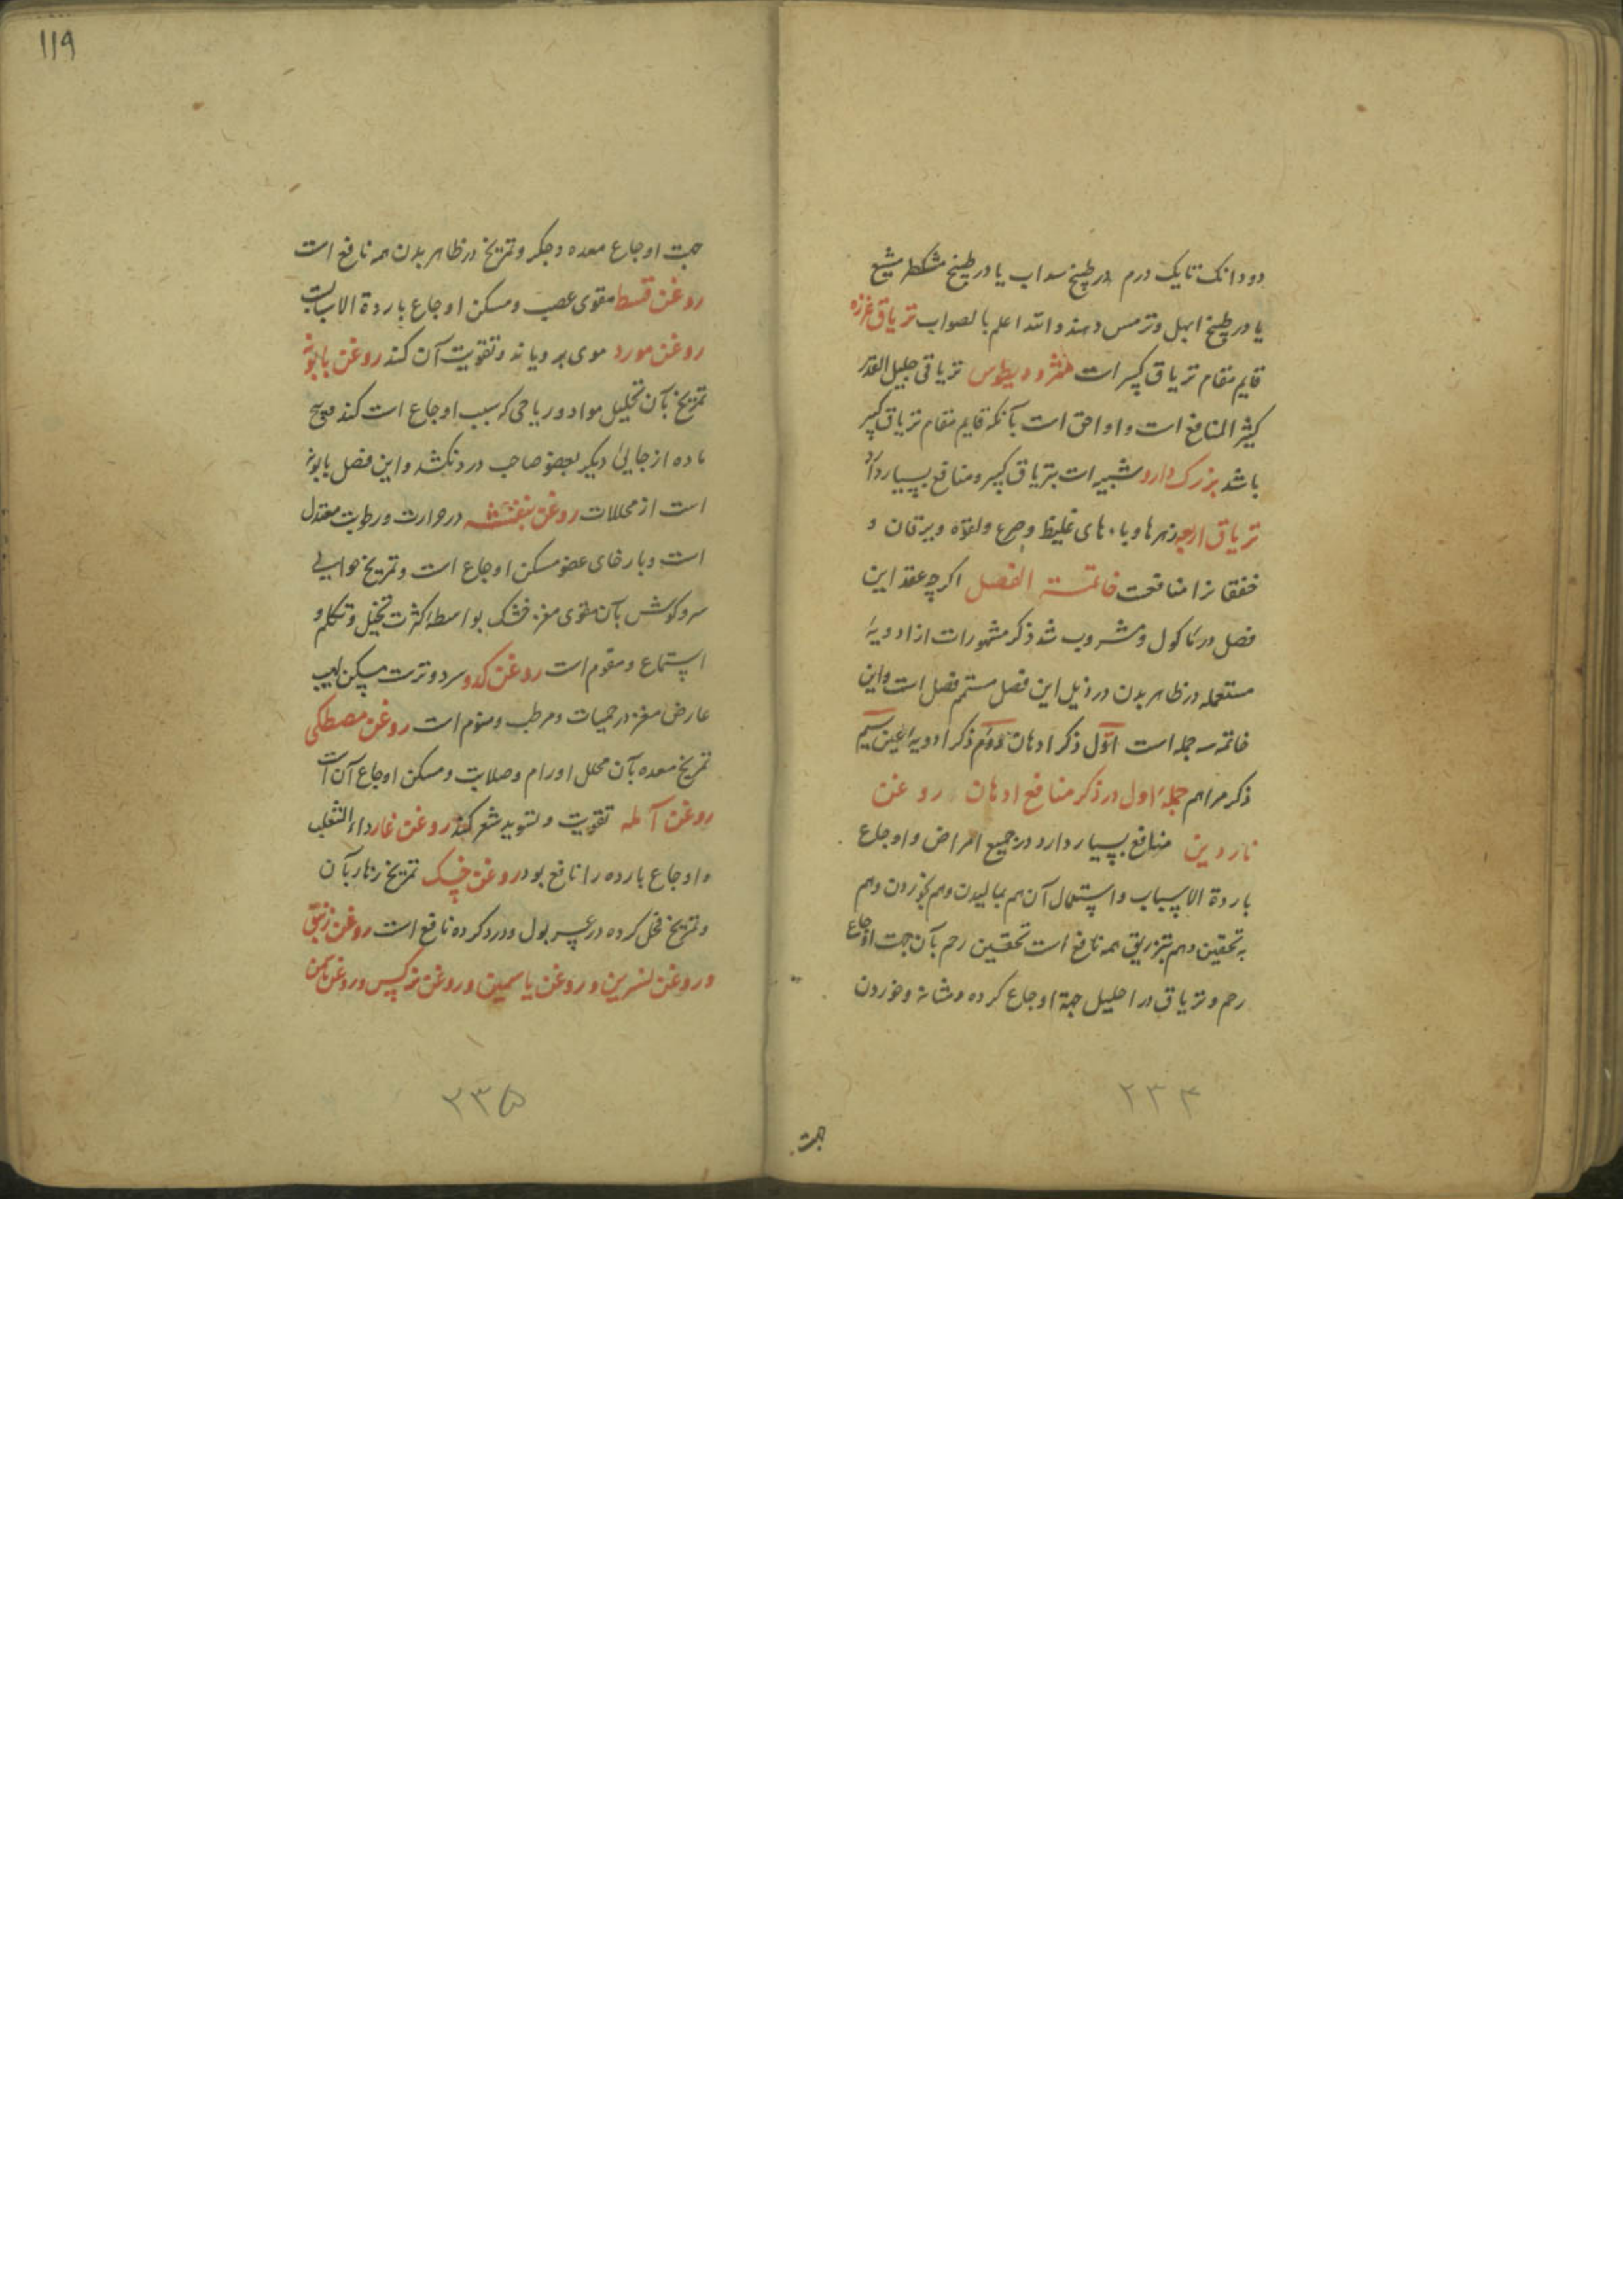 دو دانک تا یک درم در طبیخ سداب یا در طبیخ مشکطرمشیع
یا در طبیخ ابهل و ترمس دهند و الله اعلم بالصواب تریاق عزره
قایم مقام تریاق کبیر است مثرودیطوس تریاقی جلیل القدر
کثیر المنافع است و او احق است بآنکه قایم مقام تریاق کبیر
باشد بزرک دارو شبیه است بتریاق کبیر و منافع بسیار دارد
تریاق اربعه زهرها و بادهای غلیظ و صرع و لقوه و یرقان و
خفقانرا منافعت خاتمــة الفصل اکرچه عقد این
فصل در ماکول و مشروب شد ذکر مشهورات از ادویهٔ
مستعمله در ظاهر بدن در ذیل این فصل متمم فصل است و این
خاتمه سه جمله است اوّل ذکر ادهان دوم ذکر ادویه العین سیم
ذکر مراهم جملهٔ اول در ذکر منافع ادهان روغن
ناردین منافع بسیار دارد در جمیع امراض و اوجاع
باردة الاسباب و استعمال آن هم بمالیدن و هم بخوردن و هم
به تحقین و هم بتزریق همه نافع است تحقین رحم بآن جهت اوجاع
رحم و تزیاق در احلیل جهة اوجاع کرده و مثانه و خوردن
۲۳۴
جهت
۱۱۹
جهت اوجاع معده و جکر و تمریخ در ظاهر بدن همه نافع است
روغن قسط مقوی عصب و مسکن اوجاع باردة الاسبابست
روغن مورد موی برویاند و تقویت آن کند روغن بابونه
تمریخ بآن تحلیل مواد و ریاحی که سبب اوجاع است کند و هیچ
ماده از جایی دیکر بعضو صاحب درد نکشد و این فضل بابونه
است از محللات روغن بنفشه در حرارت و رطوبت معتدل
است و بارخای عضو مسکن اوجاع است و تمریخ حوالی
سر و کوش بآن مقوی مغز خشک بواسطه کثرت تخیل و تکلم و
استماع و منوم است روغن کدو سرد و ترست مسکن لهیب
عارض مغز در حمیات و مرطب و منوم است روغن مصطکی
تمریخ معده بآن محلل اورام و صلابت و مسکن اوجاع آن است
روغن آمله تقویت و تسوید شعر کند روغن غار داء الثعلب
و اوجاع بارده را نافع بود روغن خسک تمریخ زهار بآن
و تمریخ محل کرده در عسر بول و درد کرده نافع است روغن زنبق
و روغن نسرین و روغن یاسمین و روغن نرکس و روغن
۲۳۵